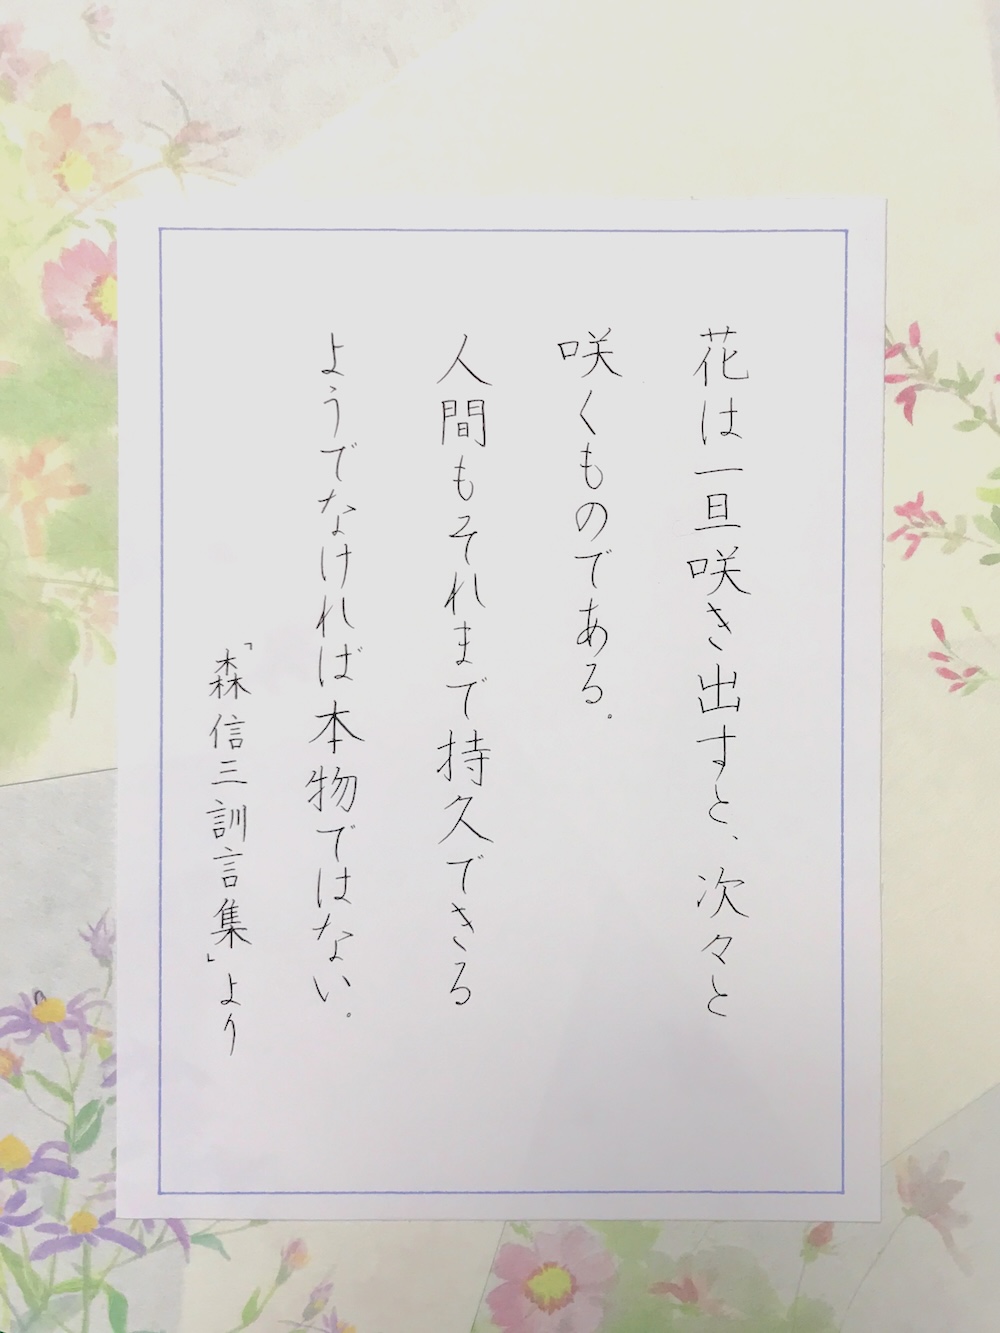 花は一旦咲き出すと、次々と
咲くものである。
人間もそれまで持久できる
ようでなければ本物ではない。
「森信三訓言集」より